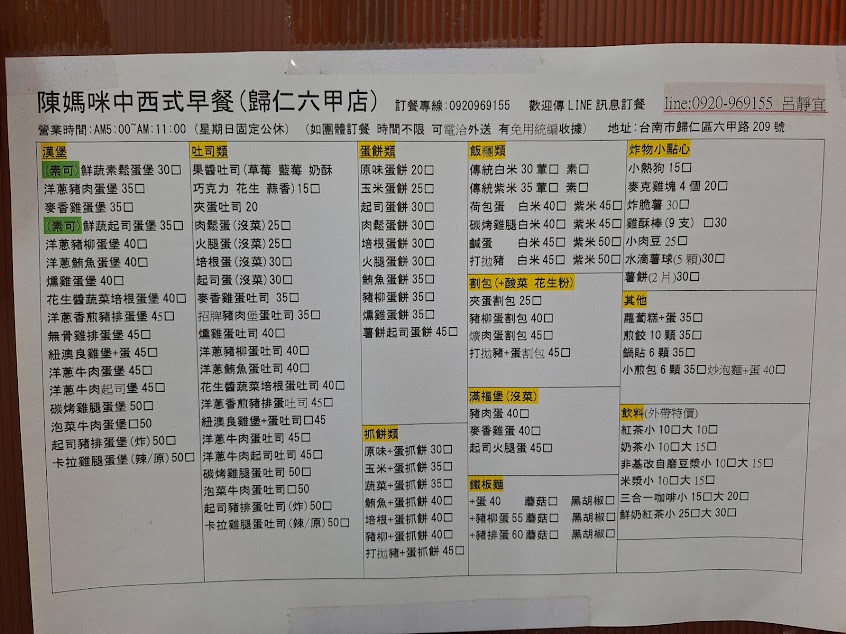 陳媽咪中西式早餐(歸仁六甲店) 訂餐專線:0920969155 歡迎傳 LINE 訊息訂餐 line:0920-969155 呂靜宜
營業時間:AM5:00~AM:11:00 (星期日固定公休) (如團體訂餐 時間不限 可電洽外送 有免用統編收據) 地址:台南市歸仁區六甲路 209 號
漢堡
(素可)鮮蔬素鬆蛋堡 30□
洋蔥豬肉蛋堡 35□
麥香雞蛋堡 35□
(素可)鮮蔬起司蛋堡 35□
洋蔥豬柳蛋堡 40□
洋蔥鮪魚蛋堡 40□
燻雞蛋堡 40□
花生醬蔬菜培根蛋堡 40□
洋蔥香煎豬排蛋堡 45□
無骨雞排蛋堡 45□
紐澳良雞堡+蛋 45□
洋蔥牛肉蛋堡 45□
洋蔥牛肉起司堡 45□
碳烤雞腿蛋堡 50□
泡菜牛肉蛋堡□50
起司豬排蛋堡(炸) 50□
卡拉雞腿蛋堡(辣/原) 50□
吐司類
果醬吐司(草莓 藍莓 奶酥
巧克力 花生 蒜香) 15□
夾蛋吐司 20
肉鬆蛋(沒菜) 25□
火腿蛋(沒菜) 25□
培根蛋(沒菜) 30□
起司蛋(沒菜) 30□
麥香雞蛋吐司 35□
招牌豬肉堡蛋吐司 35□
燻雞蛋吐司 40□
洋蔥豬柳蛋吐司 40□
洋蔥鮪魚蛋吐司 40□
花生醬蔬菜培根蛋吐司 40□
洋蔥香煎豬排蛋吐司 45□
紐澳良雞堡+蛋吐司□45
洋蔥牛肉蛋吐司 45□
洋蔥牛肉起司吐司 45□
碳烤雞腿蛋吐司 50□
泡菜牛肉蛋吐司□50
起司豬排蛋吐司(炸) 50□
卡拉雞腿蛋吐司(辣/原) 50□
蛋餅類
原味蛋餅 20□
玉米蛋餅 25□
起司蛋餅 30□
肉鬆蛋餅 30□
培根蛋餅 30□
火腿蛋餅 30□
鮪魚蛋餅 35□
豬柳蛋餅 35□
燻雞蛋餅 35□
薯餅起司蛋餅 45□
抓餅類
原味+蛋抓餅 30□
玉米+蛋抓餅 35□
蔬菜+蛋抓餅 35□
鮪魚+蛋抓餅 40□
培根+蛋抓餅 40□
豬柳+蛋抓餅 40□
打拋豬+蛋抓餅 45□
飯糰類
傳統白米 30 葷□ 素□
傳統紫米 35 葷□ 素□
荷包蛋 白米 40□ 紫米 45□
碳烤雞腿白米 40□ 紫米 45□
鹹蛋 白米 45□ 紫米 50□
打拋豬 白米 45□ 紫米 50□
割包(+酸菜 花生粉)
夾蛋割包 25□
豬柳蛋割包 40□
爌肉蛋割包 45□
打拋豬+蛋割包 45□
滿福堡(沒菜)
豬肉蛋 40□
麥香雞蛋 40□
起司火腿蛋 45□
鐵板麵
+蛋 40 蘑菇□ 黑胡椒□
+豬柳蛋 55 蘑菇□ 黑胡椒□
+豬排蛋 60 蘑菇□ 黑胡椒□
炸物小點心
小熱狗 15□
麥克雞塊 4 個 20□
炸脆薯 30□
雞酥棒(9 支) □30
小肉豆 25□
水滴薯球(5 顆)30□
薯餅(2 片)30□
其他
蘿蔔糕+蛋 35□
煎餃 10 顆 35□
鍋貼 6 顆 35□
小煎包 6 顆 35□炒泡麵+蛋 40□
飲料(外帶特價)
紅茶小 10□大 10□
奶茶小 10□大 15□
非基改自磨豆漿小 10□大 15□
米漿小 10□大 15□
三合一咖啡小 15□大 20□
鮮奶紅茶小 25□大 30□